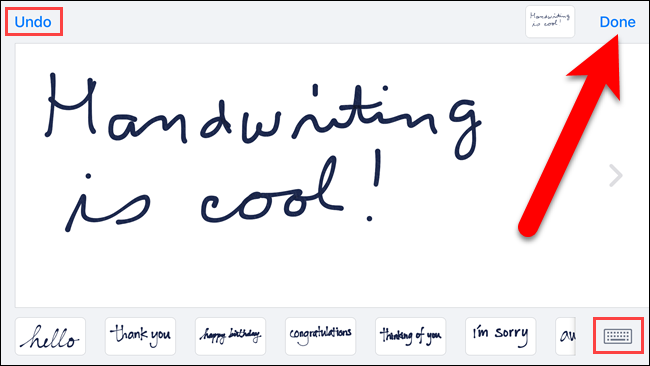 Undo
Handwriting
is cool!
Done
Handwriting
is cool!
hello
thank you
happy birthday.
congratulations
thinking of you
i'm sorry